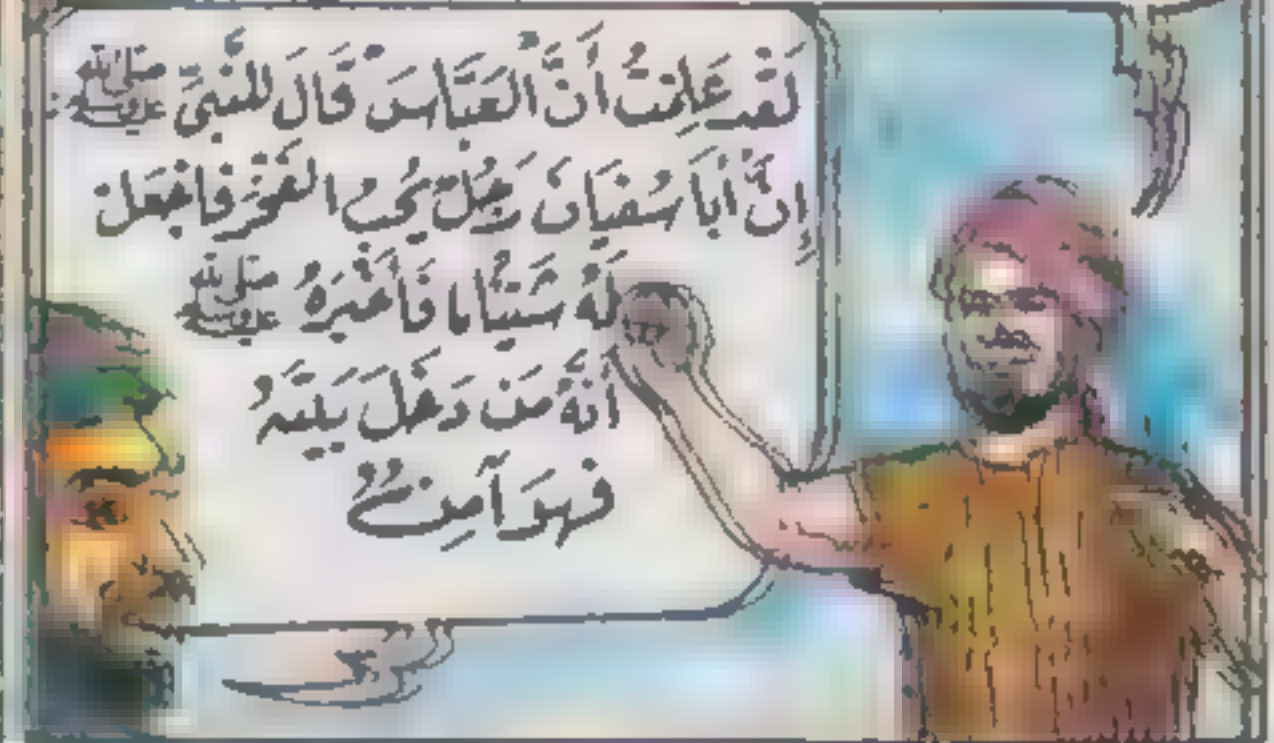 لَقَدْ عَلِمْتُ أَنَّ الْعَبَّاسَ قَالَ لِلنَّبِيِّ ﷺ
إِنَّ أَبَا سُفْيَانَ رَجُلٌ يُحِبُّ الْفَخْرَ فَاجْعَلْ
لَهُ شَيْئًا فَأَخْبَرَهُ ﷺ
أَنَّهُ مَنْ دَخَلَ بَيْتَهُ
فَهُوَ آمِنٌ